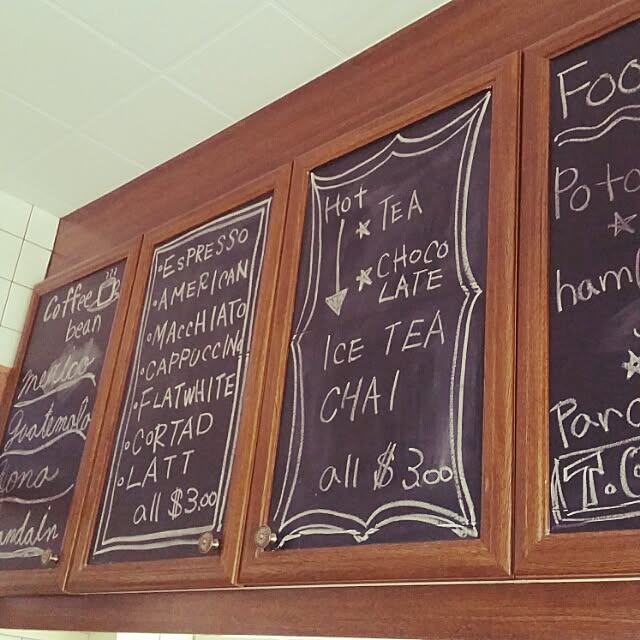 Coffee
bean
mexico
Guatemala
ona
andain
ESPRESSO
AMERICAN
MACCHIATO
CAPPUCCINO
FLATWHITE
CORTAD
LATT
all $3.00
Hot
TEA
CHOCO
LATE
ICE TEA
CHAI
all $3.00
Foo
Poto
ham
Panc
T.O